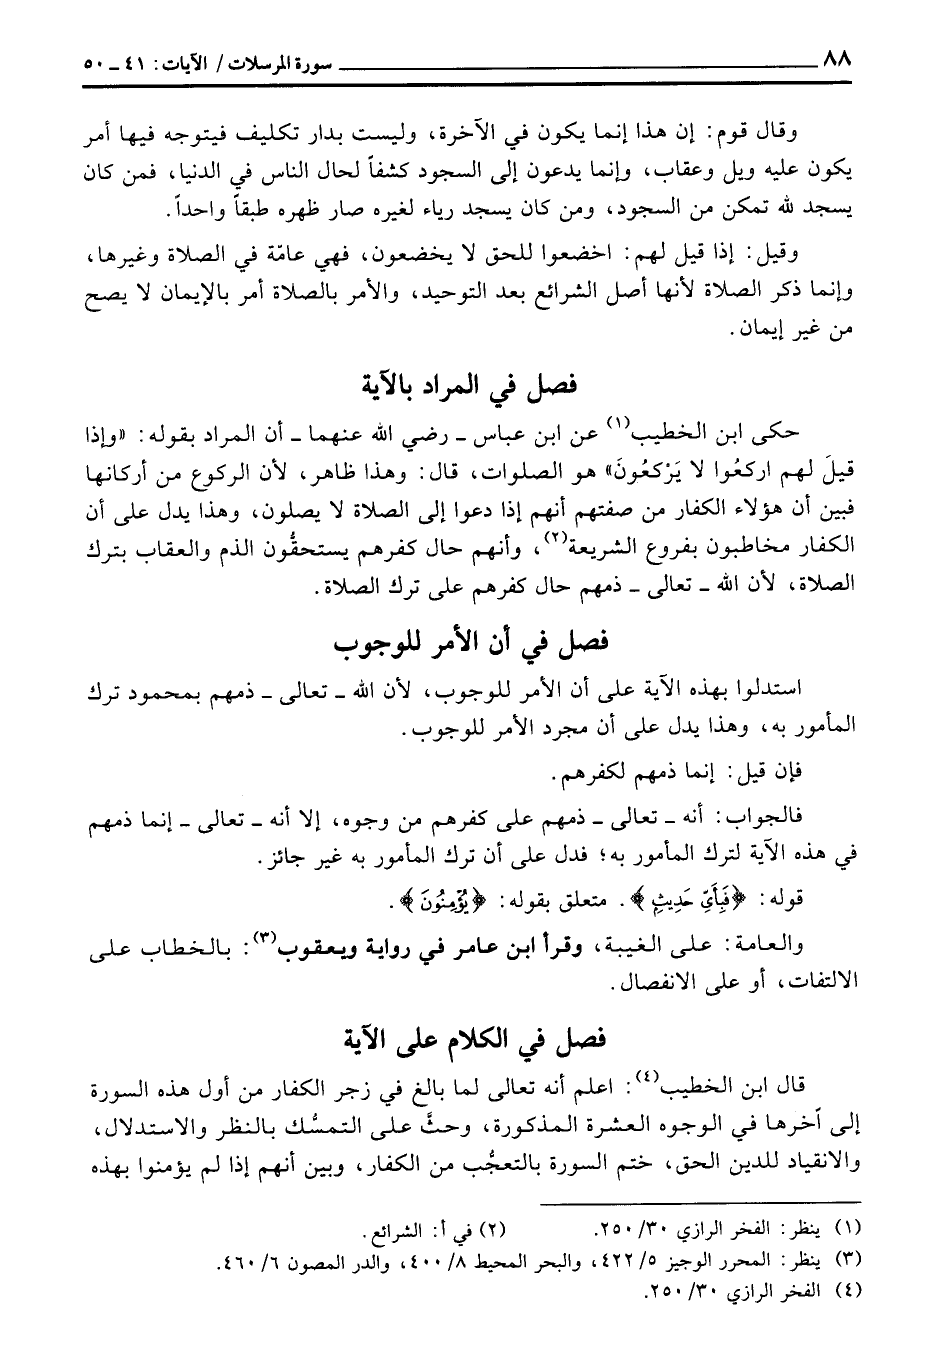 ٨٨ ــــــــــ سورة المرسلات/ الآيات: ٤١ ــ ٥٠
وقال قوم: إن هذا إنما يكون في الآخرة، وليست بدار تكليف فيتوجه فيها أمر
يكون عليه ويل وعقاب، وإنما يدعون إلى السجود كشفاً لحال الناس في الدنيا، فمن كان
يسجد لله تمكن من السجود، ومن كان يسجد رياء لغيره صار ظهره طبقاً واحداً.
وقيل: إذا قيل لهم: اخضعوا للحق لا يخضعون، فهي عامّة في الصلاة وغيرها،
وإنما ذكر الصلاة لأنها أصل الشرائع بعد التوحيد، والأمر بالصلاة أمر بالإيمان لا يصح
من غير إيمان.
فصل في المراد بالآية
حكى ابن الخطيب(١) عن ابن عباس ـ رضي الله عنهما ـ أن المراد بقوله: «وإذا
قيلَ لهم اركعُوا لا يَرْكعُونَ» هو الصلوات، قال: وهذا ظاهر، لأن الركوع من أركانها
فبين أن هؤلاء الكفار من صفتهم أنهم إذا دعوا إلى الصلاة لا يصلون، وهذا يدل على أن
الكفار مخاطبون بفروع الشريعة(٢)، وأنهم حال كفرهم يستحقُّون الذم والعقاب بترك
الصلاة، لأن الله ـ تعالى ـ ذمهم حال كفرهم على ترك الصلاة.
فصل في أن الأمر للوجوب
استدلوا بهذه الآية على أن الأمر للوجوب، لأن الله ـ تعالى ـ ذمهم بمحمود ترك
المأمور به، وهذا يدل على أن مجرد الأمر للوجوب.
فإن قيل: إنما ذمهم لكفرهم.
فالجواب: أنه ـ تعالى ـ ذمهم على كفرهم من وجوه، إلا أنه ـ تعالى ـ إنما ذمهم
في هذه الآية لترك المأمور به؛ فدل على أن ترك المأمور به غير جائز.
قوله: ﴿فَبِأَيِّ حَدِيثٍ﴾. متعلق بقوله: ﴿يُؤْمِنُونَ﴾.
والعامة: على الغيبة، وقرأ ابن عامر في رواية ويعقوب(٣): بالخطاب على
الالتفات، أو على الانفصال.
فصل في الكلام على الآية
قال ابن الخطيب(٤): اعلم أنه تعالى لما بالغ في زجر الكفار من أول هذه السورة
إلى آخرها في الوجوه العشرة المذكورة، وحثَّ على التمسُّك بالنظر والاستدلال،
والانقياد للدين الحق، ختم السورة بالتعجُّب من الكفار، وبين أنهم إذا لم يؤمنوا بهذه
(١) ينظر: الفخر الرازي ٣٠/ ٢٥٠. (٢) في أ: الشرائع.
(٣) ينظر: المحرر الوجيز ٥/ ٤٢٢، والبحر المحيط ٨/ ٤٠٠، والدر المصون ٦/ ٤٦٠.
(٤) الفخر الرازي ٣٠/ ٢٥٠.